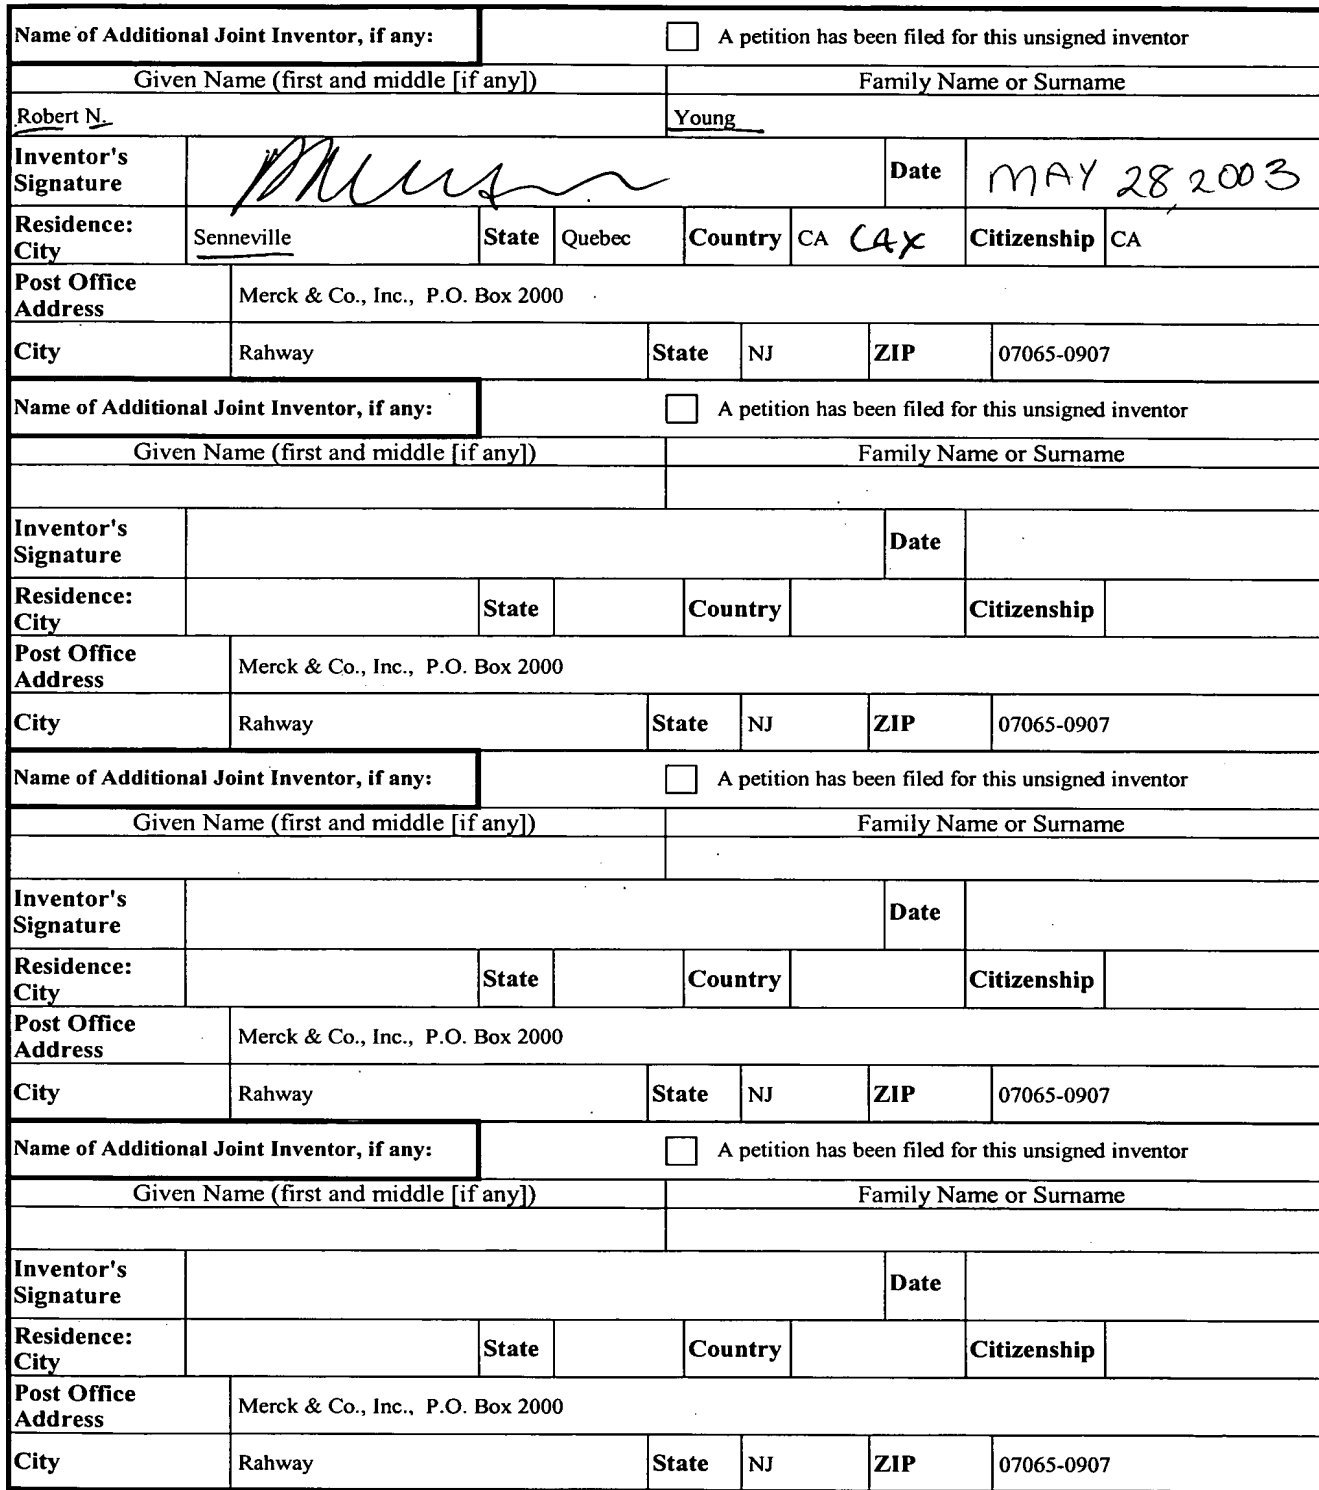 Name of Additional Joint Inventor, if any: A petition has been filed for this unsigned inventor
Given Name (first and middle [if any]) Family Name or Surname
Robert N. Young
Inventor's Signature Date MAY 28, 2003
Residence: City Senneville State Quebec Country CA CAX Citizenship CA
Post Office Address Merck & Co., Inc., P.O. Box 2000
City Rahway State NJ ZIP 07065-0907
Name of Additional Joint Inventor, if any: A petition has been filed for this unsigned inventor
Given Name (first and middle [if any]) Family Name or Surname
Inventor's Signature Date
Residence: City State Country Citizenship
Post Office Address Merck & Co., Inc., P.O. Box 2000
City Rahway State NJ ZIP 07065-0907
Name of Additional Joint Inventor, if any: A petition has been filed for this unsigned inventor
Given Name (first and middle [if any]) Family Name or Surname
Inventor's Signature Date
Residence: City State Country Citizenship
Post Office Address Merck & Co., Inc., P.O. Box 2000
City Rahway State NJ ZIP 07065-0907
Name of Additional Joint Inventor, if any: A petition has been filed for this unsigned inventor
Given Name (first and middle [if any]) Family Name or Surname
Inventor's Signature Date
Residence: City State Country Citizenship
Post Office Address Merck & Co., Inc., P.O. Box 2000
City Rahway State NJ ZIP 07065-0907